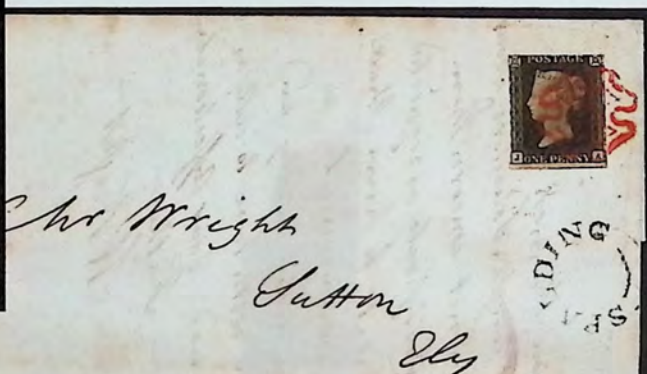 POSTAGE
ONE PENNY
Chr Wright
Sutton
Ely
SPALDING